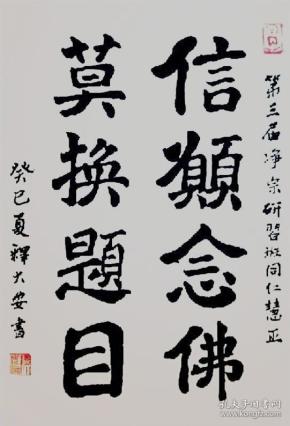 第三届净宗研習班同仁慧正
信願念佛
莫換題目
癸巳夏釋大安書
孔夫子旧书网